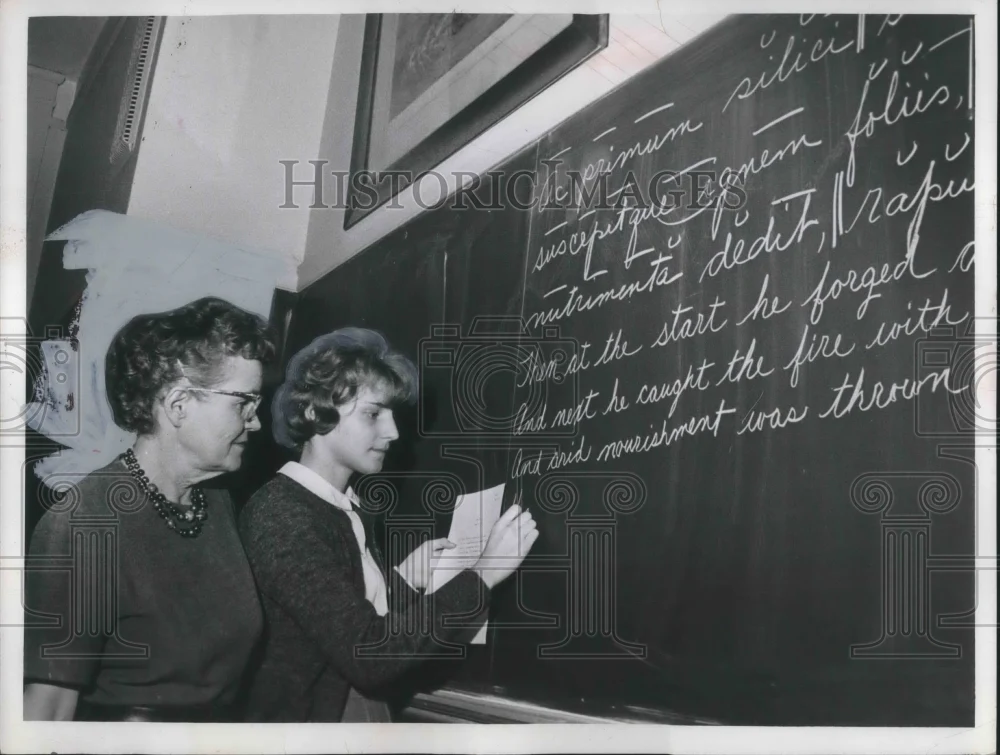 HISTORIC IMAGES
Ac primum silici
suscepitque ignem foliis,
nutrimenta dedit, rapu
Then at the start he forged a
And next he caught the fire with
And arid nourishment was thrown